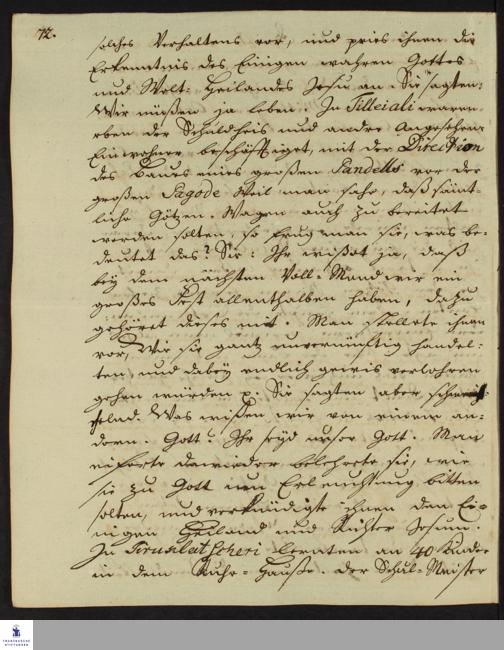 72.
solches Verhaltens vor, und pries ihnen die
Erkenntnis des Einigen wahren Gottes
und Welt-Heilandes Jesu an. Sie sagten:
Wir müßen ja leben. In Silleiali waren
eben der Schuldheis und andre Angesehene
Einwohner beschäfftiget, mit der Direction
des Baues eines großen Pandells vor der
großen Pagode. Weil man sahe, daß sämt-
liche Götzen-Wagen auch zu bereitet
werden solten, so frug man sie, was be-
deutet das? Sie: Ihr wißet ja, daß
bey dem nächsten Voll-Mond wir ein
großes Fest allenthalben haben, dazu
gehöret dieses mit. Man stellete ihnen
vor, Wie sie gantz unvernünftig handel-
ten, und dabey endlich gewis verlohren
gehen würden p. Sie sagten aber
Was wißen wir von einem an-
dern Gott? Ihr seyd unser Gott. Man
eiferte dawieder, belehrete sie, wie
sie zu Gott um Erleuchtung bitten
solten, und verkündigte ihnen den Ei-
nigen Heiland und Richter Jesum.
In Tirusilutscheri lerneten an 40 Kinder
in dem Ruhe-Hause. Der Schul-Meister
FRANCKESCHE
STIFTUNGEN